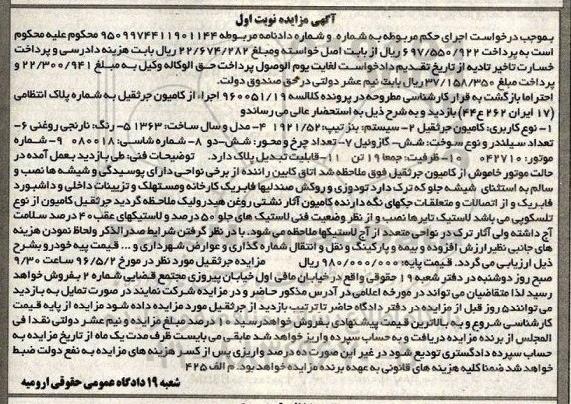 آگهی مزایده نوبت اول
بموجب درخواست اجرای حکم مربوطه به شماره و شماره دادنامه مربوطه ۹۵۰۹۹۷۴۴۱۱۹۰۱۱۴۴ محکوم علیه محکوم
است به پرداخت ۶۹۷/۵۵۰/۹۲۲ ریال از بابت اصل خواسته ومبلغ ۲۲/۶۷۴/۲۸۲ ریال بابت هزینه دادرسی و پرداخت
خسارت تاخیر تادیه از تاریخ تقدیم دادخواست لغایت یوم الوصول پرداخت حق الوکاله وکیل به مبلغ ۲۲/۳۰۰/۹۴۱ و
پرداخت مبلغ ۳۷/۱۵۸/۳۵۰ ریال بابت نیم عشر دولتی در حق صندوق دولت.
احتراما بازگشت به قرار کارشناسی مطروحه در پرونده کلاسه ۹۶۰۰۵۱/۱۹ اجراء از کامیون جرثقیل به شماره پلاک انتظامی
(۱۷ ایران ۲۶۲ ع۴۴) بازدید و به شرح ذیل به استحضار عالی می رساندو
۱- نوع کاربری: کامیون جرثقیل ۲- سیستم: بنز تیپ: ۱۹۲۱/۵۲ ۴- مدل و سال ساخت: ۱۳۶۳ ۵- رنگ: نارنجی روغنی ۶-
تعداد سیلندر و نوع سوخت: شش- گازوئیل ۷- تعداد چرخ و محور: شش-دو ۸- شماره شاسی: ۰۸۰۰۱۸ ۹- شماره
موتور: ۰۴۲۷۱۰ ۱۰- ظرفیت: جمعا ۱۹ تن ۱۱- قابلیت تبدیل پلاک دارد. توضیحات فنی: طی بازدید بعمل آمده در
حالت موتور خاموش از کامیون جرثقیل فوق ملاحظه شد اتاق کابین راننده از برخی نواحی دارای پوسیدگی و شیشه ها نصب و
سالم به استثنای شیشه جلو که ترک دارد تودوزی و روکش صندلیها فابریک کارخانه ومستهلک و تزیینات داخلی و داشبورد
فابریک و از اتصالات و متعلقات جکهای نگه دارنده کامیون آثار نشتی روغن هیدرولیک ملاحظه گردید جرثقیل کامیون از نوع
تلسکوپی می باشد لاستیک تایرها نصب و از نظر وضعیت فنی لاستیک های جلو ۵۰ درصد و لاستیکهای عقب ۴۰ درصد سلامت
آج داشته ولی آثار ترک در نواحی متعدد از آج لاستیکها ملاحظه می شود. با در نظر گرفتن شرایط صدرالذکر ولحاظ نمودن هزینه
های جانبی نظیر ارزش افزوده و بیمه و پارکینگ و نقل و انتقال شماره گذاری و عوارض شهرداری و... قیمت پیه خودرو بشرح
ذیل ارزیابی می گردد. قیمت پایه: ۹۸۰/۰۰۰/۰۰۰ ریال مزایده جرثقیل مورد نظر در مورخ ۹۶/۵/۲ ساعت ۹/۳۰
صبح روز دوشنبه در دفتر شعبه ۱۹ حقوقی واقع در خیابان مافی اول خیابان پیروزی مجتمع قضایی شماره ۲ بفروش خواهد
رسید لذا متقاضیان می توانند در مورخه اعلامی در آدرس مذکور حاضر و در مزایده شرکت نمایند در صورت تمایل به بازدید
می توانند۵ روز قبل از مزایده در دفتر دادگاه حاضر تا ترتیب بازدید از جرثقیل مورد مزایده داده شود مزایده از پایه قیمت
کارشناسی شروع و به بالاترین قیمت پیشنهادی بفروش خواهد رسید ۱۰ درصد مبلغ مزایده و نیم عشر دولتی نقدا فی
المجلس از برنده مزایده دریافت و به حساب سپرده واریز خواهد شد مابقی می بایست ظرف مدت یک ماه از تاریخ مزایده به
حساب سپرده دادگستری تودیع شود در غیر این صورت ده درصد واریزی پس از کسر هزینه های مزایده به نفع دولت ضبط
خواهد شد ضمنا کلیه هزینه های قانونی به عهده برنده مزایده خواهد بود. م الف ۴۲۵
شعبه ۱۹ دادگاه عمومی حقوقی ارومیه